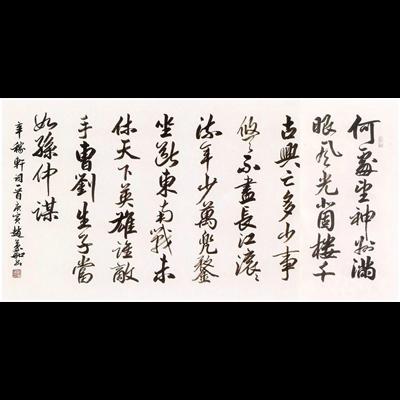 何處望神州滿
眼風光北固樓千
古興亡多少事
悠〻不盡長江滾〻
流年少萬兜鍪
坐斷東南戰未
休天下英雄誰敵
手曹劉生子當
如孫仲謀
辛稼軒詞一首庚寅趙